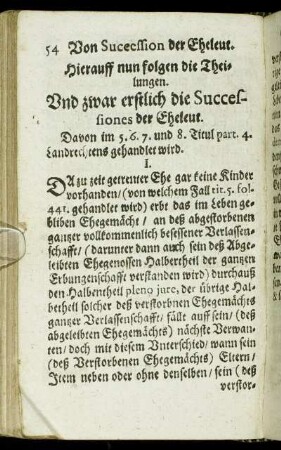 54 Von Sucession der Eheleut.
Hierauff nun folgen die Thei-
lungen.
Vnd zwar erstlich die Succes-
siones der Eheleut.
Davon im 5. 6. 7. und 8. Titul part. 4.
Landrechtens gehandlet wird.
I.
DA zu zeit getreuer Ehe gar keine Kinder
vorhanden/ (von welchem Fall tit. 5. fol.
441. gehandlet wird) erbt das im Leben ge-
bliben Ehegemächt/ an deß abgestorbenen
ganzer vollkommenlich besessener Verlassen-
schafft/ (darunter dann auch sein deß Abge-
leibten Ehegenossen Halbertheil der ganzen
Erbungenschafft verstanden wird) durchauß
den Halbentheil pleno jure, der übrige Hal-
betheil solcher deß verstorbnen Ehegemächts
ganzer Verlassenschafft/ fällt auff sein/ (deß
abgeleibten Ehegemächts) nächste Verwan-
ten/ doch mit diesem Unterschied/ wann sein
(deß Verstorbenen Ehegemächts) Eltern/
Item neben oder ohne denselben/ sein (deß
verstor-